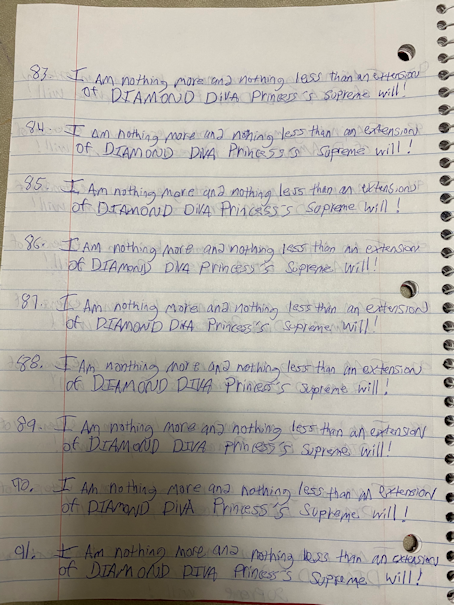 83. I Am nothing more and nothing less than an extension
of DIAMOND DIVA Princess's Supreme will!
84. I Am nothing more and nothing less than an extension
of DIAMOND DIVA Princess's Supreme will!
85. I Am nothing more and nothing less than an extension
of DIAMOND DIVA Princess's Supreme will!
86. I Am nothing more and nothing less than an extension
of DIAMOND DIVA Princess's Supreme will!
87. I Am nothing more and nothing less than an extension
of DIAMOND DIVA Princess's Supreme will!
88. I Am nonthing more and nothing less than an extension
of DIAMOND DIVA Princess's supreme will!
89. I Am nothing more and nothing less than an extension
of DIAMOND DIVA princess's supreme will!
90. I Am nothing more and nothing less than an extension
of DIAMOND DIVA Princess's Supreme will!
91. I Am nothing more and nothing less than an extension
of DIAMOND DIVA Princess's Supreme will!